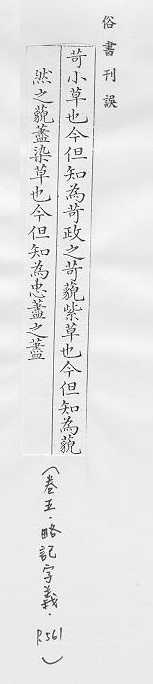 俗書刊誤
苛小草也今但知為苛政之苛藐紫草也今但知為藐
然之藐藎染草也今但知為忠藎之藎
(卷五·略記字義·P.561)